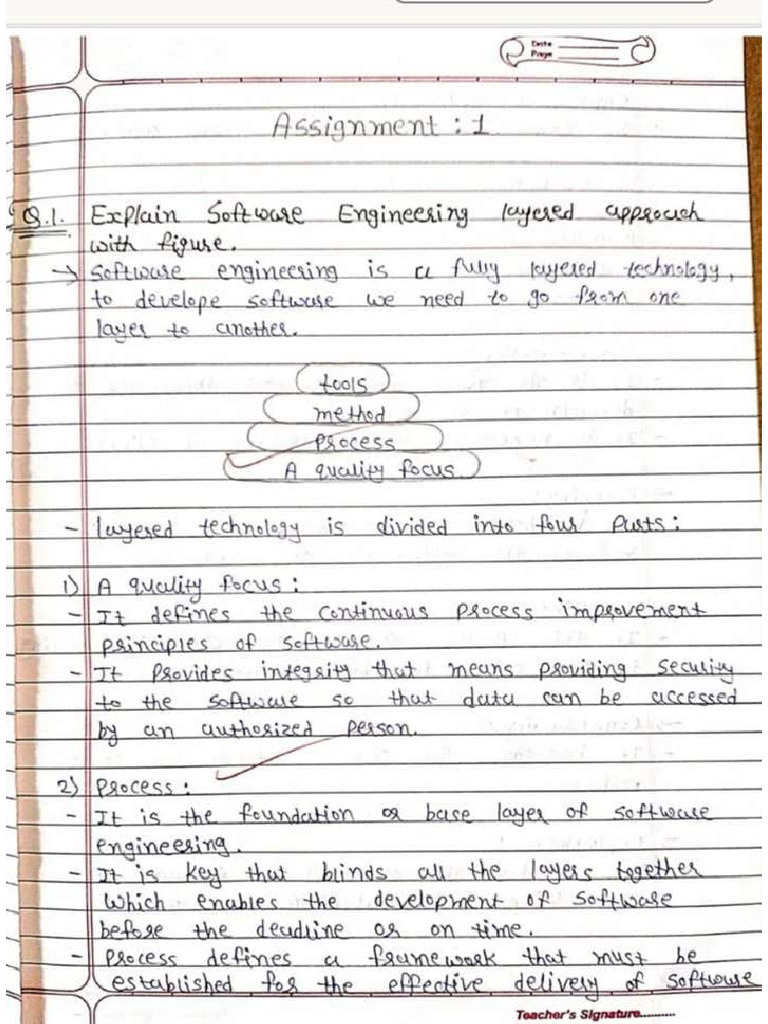 Date
Page
Assignment : 1
Q.1. Explain Software Engineering layered approach
with figure.
→ Software engineering is a fully layered technology,
to develope software we need to go from one
layer to another.
tools
method
process
A quality focus
- layered technology is divided into four parts:
1) A quality focus:
- It defines the continuous process improvement
principles of software.
- It provides integrity that means providing security
to the software so that data can be accessed
by an authorized person.
2) Process:
- It is the foundation or base layer of software
engineering.
- It is key that blinds all the layers together
which enables the development of software
before the deadline or on time.
- Process defines a framework that must be
established for the effective delivery of software
Teacher's Signature...........